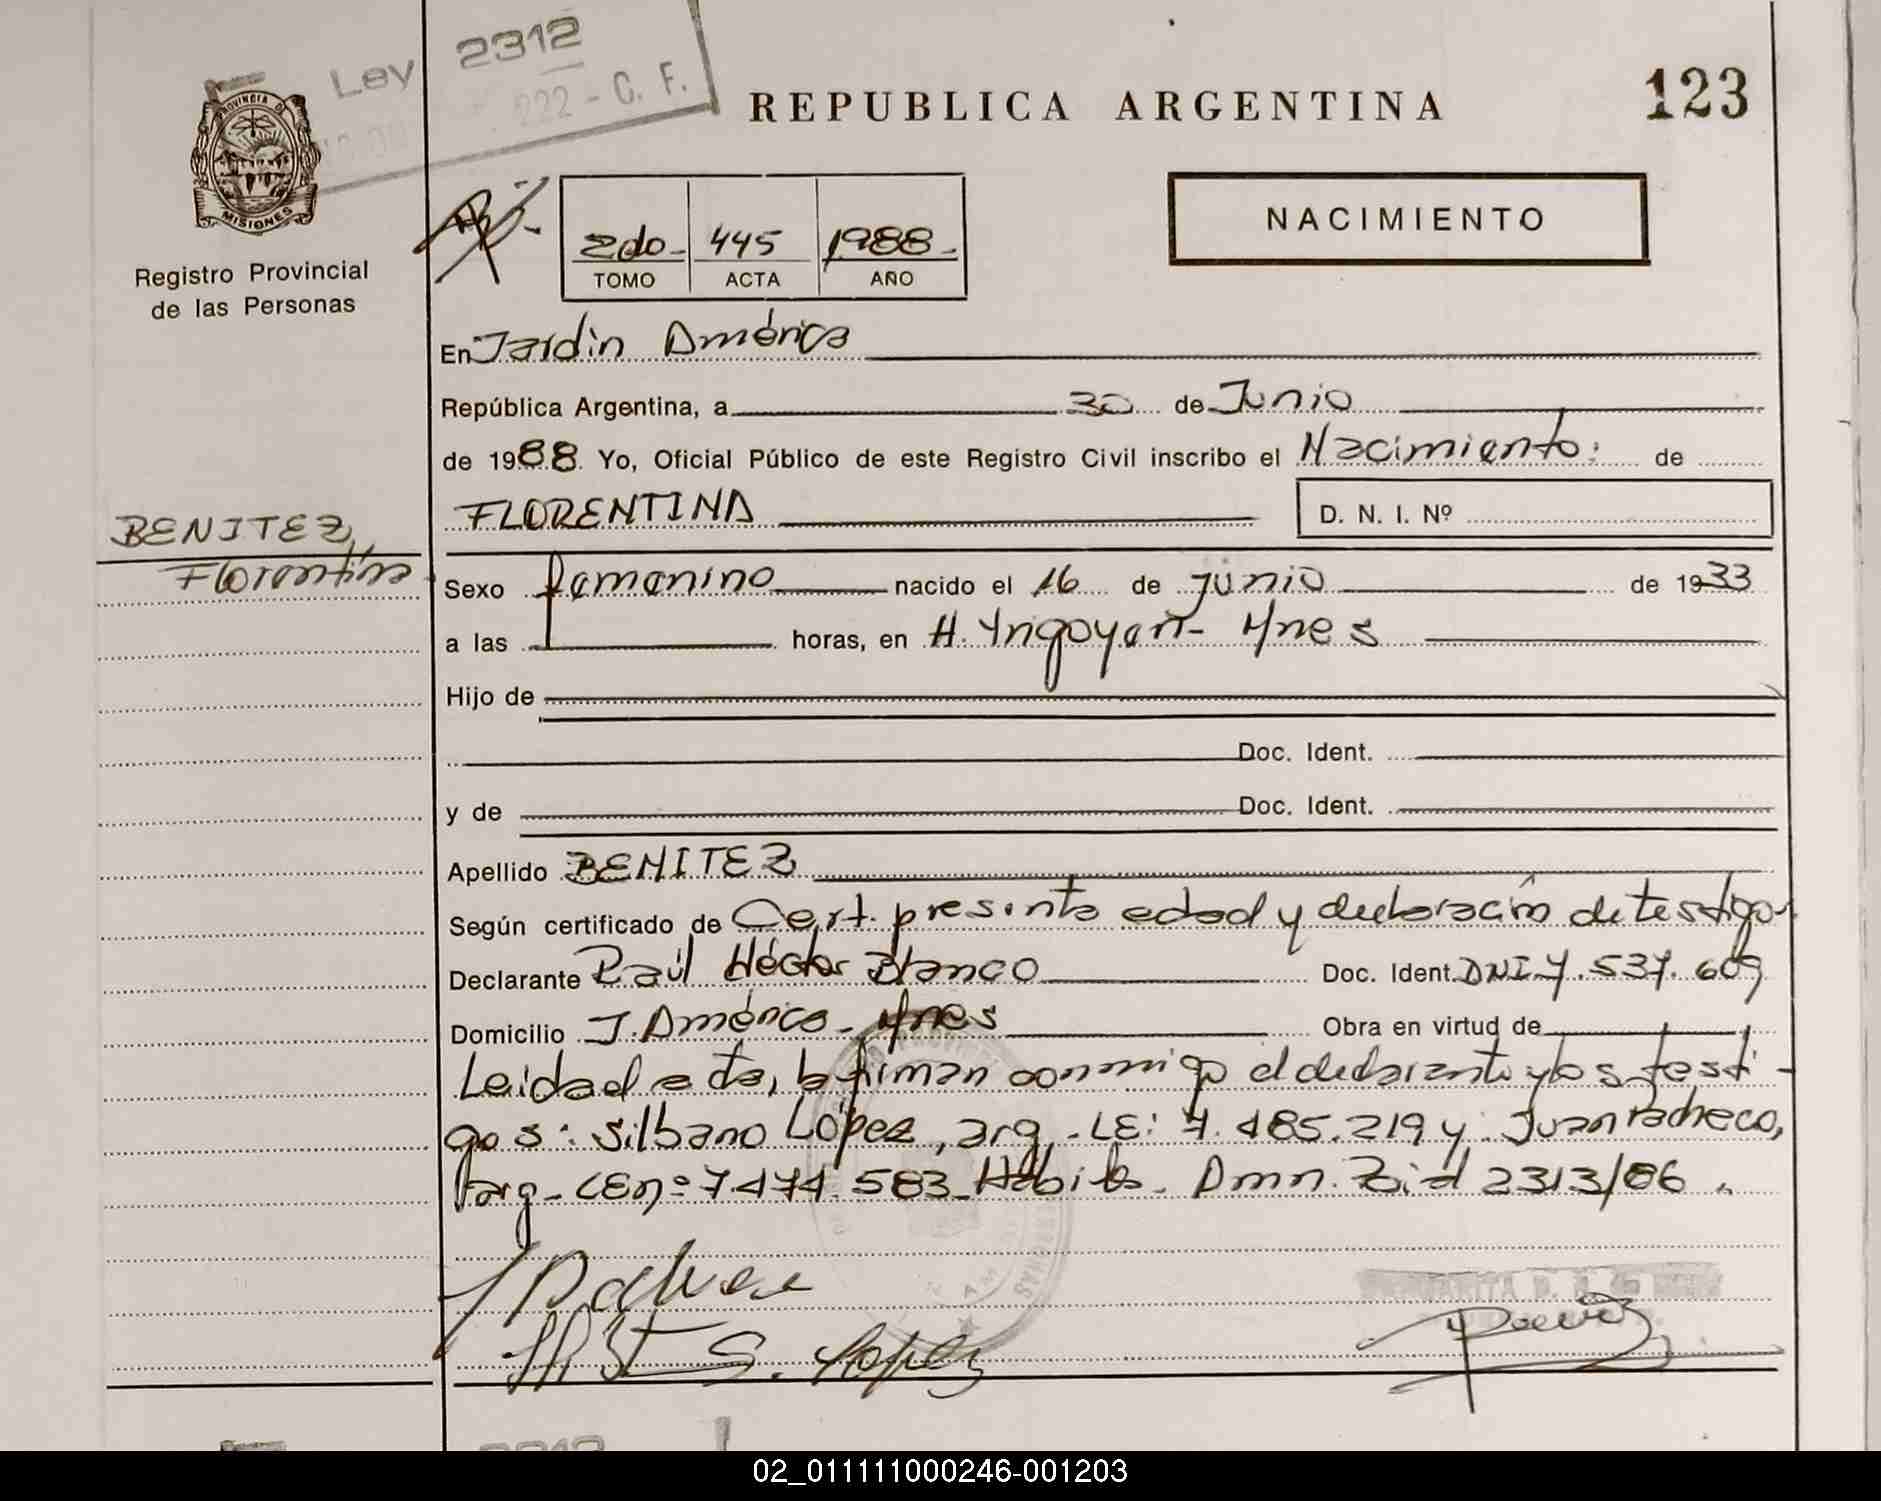 Ley 2312
222 - C. F.
REPUBLICA ARGENTINA
123
PROVINCIA DE
MISIONES
Registro Provincial
de las Personas
2do- 445 1988-
TOMO ACTA AÑO
NACIMIENTO
En Jardin América
República Argentina, a 30 de Junio
de 1988. Yo, Oficial Público de este Registro Civil inscribo el Nacimiento: de
FLORENTINA D. N. I. Nº
BENITEZ,
Florentina
Sexo femenino nacido el 16 de junio de 1933
a las horas, en H. Yrigoyen - Mnes
Hijo de
Doc. Ident.
y de Doc. Ident.
Apellido BENITEZ
Según certificado de Cert. presunta edad y declaración de testigos
Declarante Raúl Héctor Blanco Doc. Ident. DNI 7.537.609
Domicilio J. América - Mnes Obra en virtud de
Leida el acta, la firman conmigo el declarante y los testi-
gos: Silbano López, arg. - LE: 7.485.219 y Juan Pacheco,
arg - LE nº 7.474.583 - Habilto. 2313/86.
S. Lopez
02_011111000246-001203